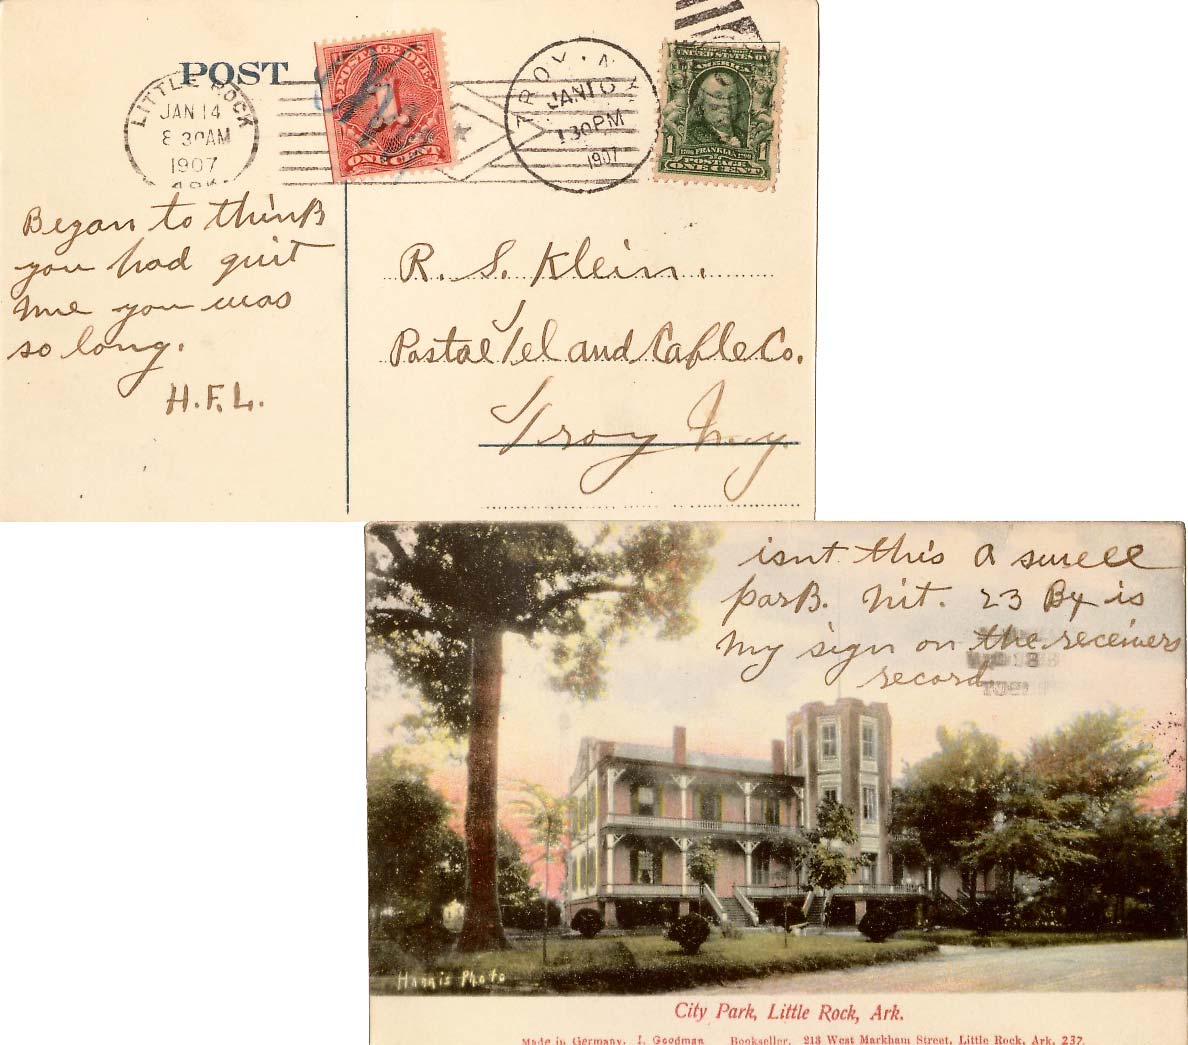 POST
LITTLE ROCK
JAN 14
8 30 AM
1907
ARK.
POSTAGE DUE
1
ONE CENT
TROY . N.Y.
JAN 10
1 30 PM
1907
UNITED STATES OF
AMERICA
FRANKLIN
1 POSTAGE 1
ONE CENT
Began to think
you had quit
me you was
so long.
H.F.L.
R. S. Klein.
Postal Tel and Cable Co.
Troy N.y.
isnt this a swell
park. Nit. 23 By is
my sign on the receivers
record
Harris Photo
City Park, Little Rock, Ark.
Made in Germany. I. Goodman Bookseller, 213 West Markham Street, Little Rock, Ark. 237.